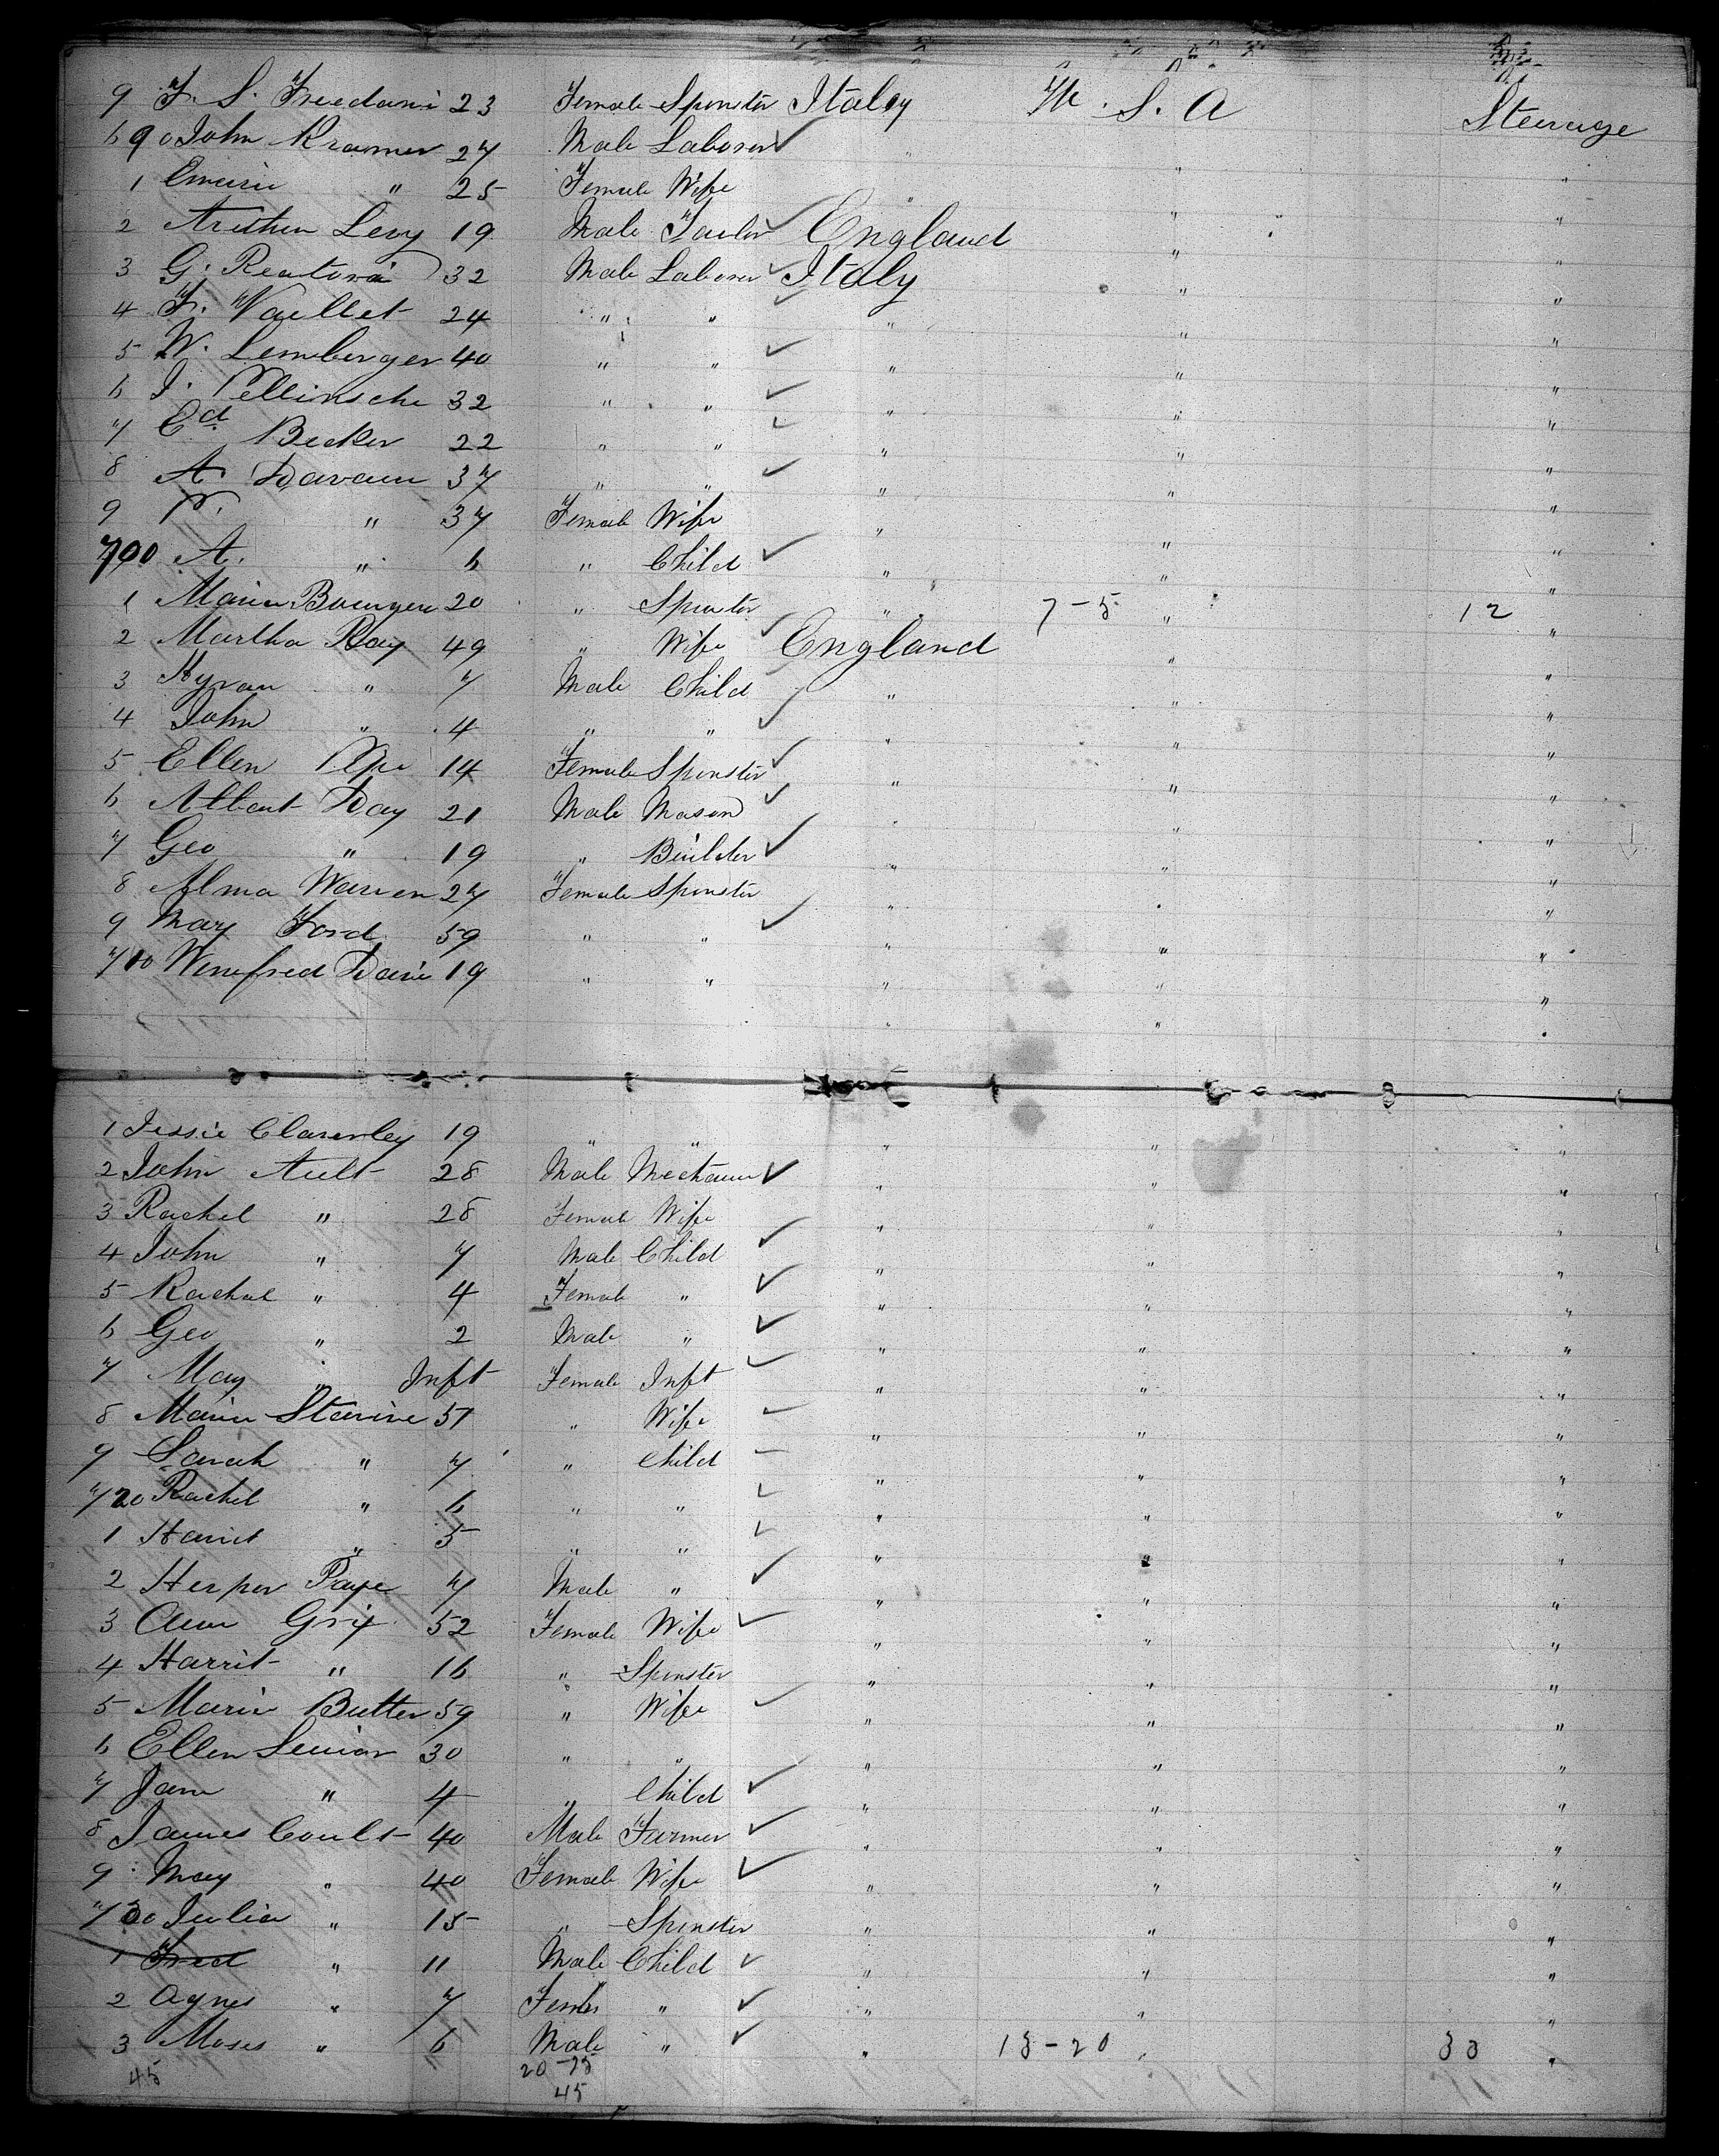 9 F. S. Freedani 23 Female Spinster Italey U. S. A Steerage
690 John Kramer 27 Male Laborer " " "
1 " 25 Female Wife " " "
2 Arethur Levy 19 Male Tailor England " "
3 G. Reatora 32 Male Laborer Italy " "
4 F. Vaillet 24 " " " " "
5 W. Lemberger 40 " " " " "
6 J. Pellinsche 32 " " " " "
7 Ed. Becker 22 " " " " "
8 A. Davaun 37 " " " " "
9 P. " 37 Female Wife " " "
700 A. " 6 " Child " " "
1 Maria 20 " Spinster " 7-5 " 12 "
2 Martha Ray 49 " Wife England " "
3 Hyram " 7 Male Child " " "
4 John " 4 " " " " "
5 Ellen 14 Female Spinster " " "
6 Albert Day 21 Male Mason " " "
7 Geo " 19 " Builder " " "
8 Alma Warren 27 Female Spinster " " "
9 Mary Ford 59 " " " " "
710 Winefred Davie 19 " " " " "
1 Jessie Claverley 19 " " " " "
2 John Ault 28 Male Mechanic " " "
3 Rachel " 28 Female Wife " " "
4 John " 7 Male Child " " "
5 Rachel " 4 Female " " " "
6 Geo " 2 Male " " " "
7 May " Inft Female Inft " " "
8 Maria Starine 51 " Wife " " "
9 Sarah " 7 " Child " " "
720 Rachel " 6 " " " " "
1 Hariet " 5 " " " " "
2 Hesper Page 7 Male " " " "
3 Ann Grix 52 Female Wife " " "
4 Harrit " 16 " Spinster " " "
5 Maria Butter 59 " Wife " " "
6 Ellen Senior 30 " " " " "
7 Jane " 4 " Child " " "
8 James Coult 40 Male Farmer " " "
9 May " 40 Female Wife " " "
730 Julia " 15 " Spinster " " "
1 Fred " 11 Male Child " " "
2 Agnes " 7 Female " " " "
3 Moses " 6 Male " " 13-20 " 33 "
45 20-25
45